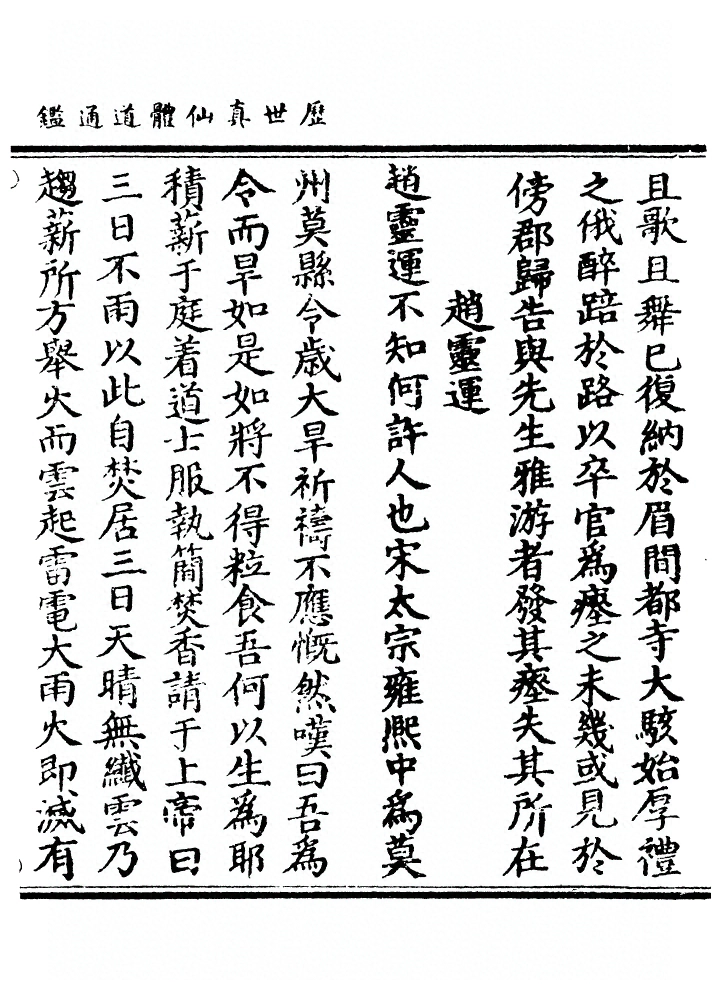 歷世真仙體道通鑑
且歌且舞已復納於眉間都寺大駭始厚禮
之俄醉踣於路以卒官為瘞之未幾或見於
傍郡歸告與先生雅游者發其瘞失其所在
趙靈運
趙靈運不知何許人也宋太宗雍熙中為莫
州莫縣令歲大旱祈禱不應慨然嘆曰吾為
令而旱如是如將不得粒食吾何以生為耶
積薪于庭着道士服執簡焚香請于上帝曰
三日不雨以此自焚居三日天晴無纖雲乃
趨薪所方舉火而雲起雷電大雨火即滅有